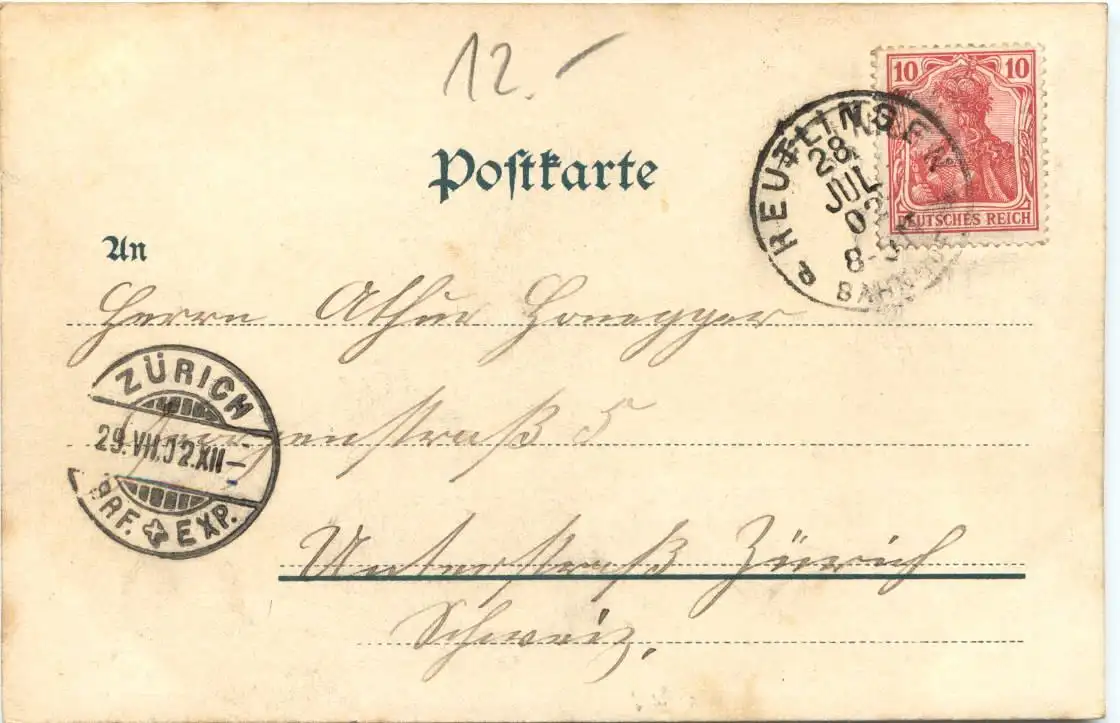 12.-
10 10
DEUTSCHES REICH
REUTLINGEN
28
JUL
02
8-
BAHNHOF
Postkarte
An
Herrn Athur Honegger
ZÜRICH
29.VII.02.XII-
BRF. EXP.
straß 5
Unterstraß Zürich
Schweiz.